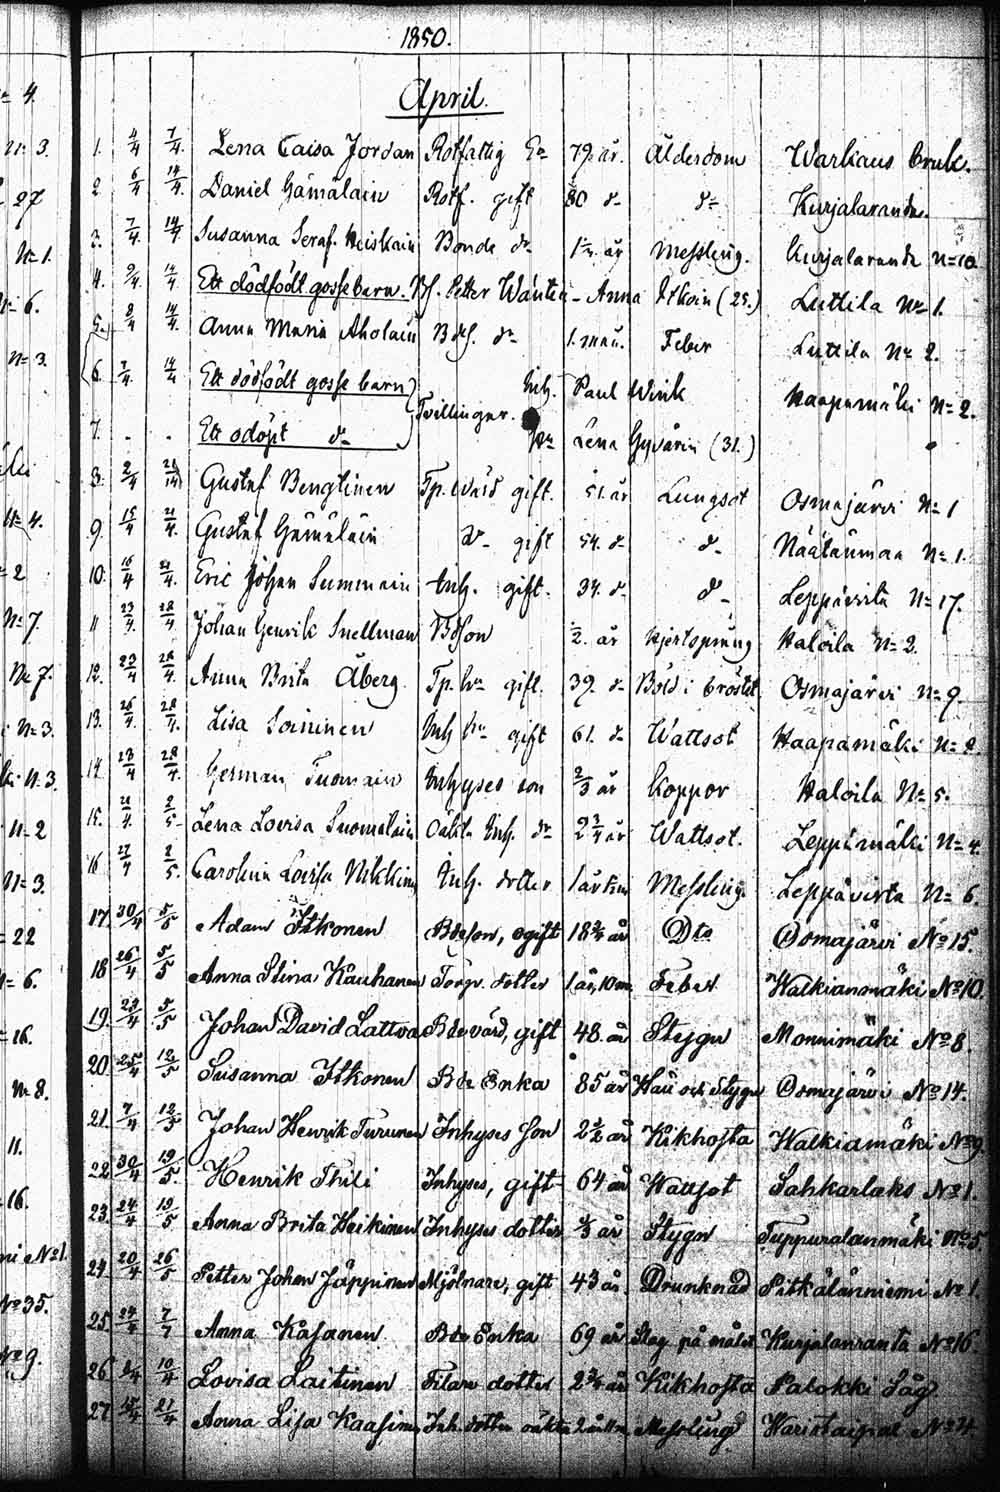 1850.
April.
1. 4/4 7/4. Lena Caisa Jordan Rotfattig Ea 79. år. Ålderdom Warkaus bruk.
2 6/4 14/4. Daniel Hämäläin Rotf. gift 80 d- d- Kurjalaranda.
3. 7/4. 14/4 Susanna Seraf. Heiskain Bonde dr år Messling. Kurjalaranda N=10
4. 9/4. 14/4 Ett dödfödt gossebarn. Petter - Anna Itkoin (25.) Luttila No 1.
5. 8/4 14/4. Anna Maria Aholain dr 1. mån. Feber Luttila No 2.
6. 7/4. 14/4 Ett dödfödt gosse barn Tvillingar. Inh. Paul Wink Haapamäki N=2.
7. - - Ett odöpt d- Hu Lena Hyvärin (31.)
8. 2/4 21/4 Gustaf Bengtinen Tp. wärd gift. 51. år Lungsot Osmajärvi N=1
9. 15/4 21/4. Gustaf Hämäläin D- gift 54. d- d- Näätänmaa N=1.
10. 16/4 21/4. Eric Johan Summain Inh. gift. 34. d- d- Leppävirta N=17.
11 23/4. 28/4. Johan Henrik Snellman Bdson 1/2. år Hjertsprång Haloila N=2.
12. 23/4 28/4. Anna Brita Åberg. Tp. hu gift. 39. d- Böld i bröstet Osmajärvi N=9.
13. 26/4. 28/4. Lisa Soininen Inh hu gift 61. d- Wattsot Haapamäki N=2.
14. 23/4 28/4. Herman Tuomain Inhyses son 2/3 år Koppor Haloila No 5.
15. 21/4. 2/5- Lena Lovisa Suomalain Oäkta Inh. dr 2 3/4 år Wattsot. Leppämäki N=4.
16 27/4 2/5. Carolina Lovisa Nikkin Inh. dotter 1 år Messling. Leppävirta N=6.
17. 30/4 5/5 Adam Itkonen Bdeson, ogift 18 3/4 år Dto Osmajärvi No 15.
18 26/4 5/5 Anna Stina Kauhanen Torpr. dotter 1 år, 10 m Feber Walkianmäki No 10.
19. 29/4 5/5 Johan David Lattva Bdevärd, gift 48. år Stygn Monnimäki No 8.
20. 25/4 12/5 Susanna Itkonen Bde Enka 85 år Håll och Stygn Osmajärvi No 14.
21. 7/4 12/5 Johan Henrik Turunen Inhyses Son 2 1/2 år Kikhosta Walkiamäki No 9.
22. 30/4 19/5. Henrik Thili Inhyses, gift 64 år Wattsot Sahkarlaks No 1.
23. 24/4 19/5 Anna Brita Heikinen Inhyses dotter år Stygn Tuppuralanmäki No 5.
24 20/4 26/5 Petter Johan Jäppinen Mjölnare, gift 43 år. Drunknad Pitkälänniemi No 1.
25. 24/4 7/7 Anna Kasanen Bde Enka 69 år Slag på målet Kurjalanranta No 16.
26. 10/4 Lovisa Laitinen Filare dotter 2 3/4 år Kikhosta Palokki Såg
27 15/4 21/4 Anna Lisa Kaasinen Inh. dotter oäkta Messling Waristaipal No 4.